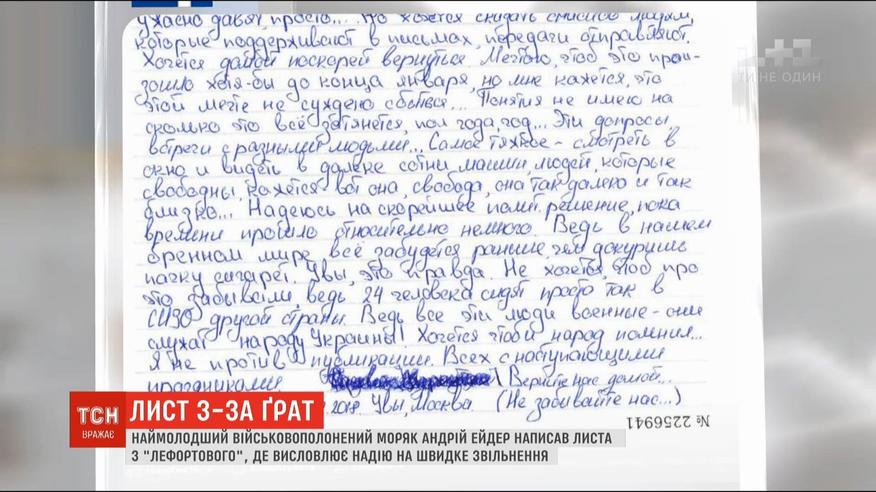 ужасно давят просто... Но хочется сказать спасибо людям,
которые поддерживают в письмах, передачи отправляют.
Хочется домой поскорей вернуться. Мечтаю, чтоб это прои-
зошло хотя-бы до конца января, но мне кажется, это
этой мечте не суждено сбыться... Понятия не имею на
сколько это всё затянется, пол года, год... Эти допросы
встречи с разными людьми... Самое тяжкое - смотреть в
окно и видеть в далеке сотни машин, людей, которые
свободны, кажется вот она, свобода, она так далеко и так
близко... Надеюсь на скорейшее полит. решение, пока
времени прошло относительно немного. Ведь в нашем
бренном мире всё забудется раньше, чем докуришь
пачку сигарет. Увы, это правда. Не хочется, чтоб про
это забывали, ведь 24 человека сидят просто так в
СИЗО другой страны. Ведь все эти люди военные - они
служат народу Украины! Хочется чтоби народ помнил...
Я не против публикации. Всех с наступающими
праздниками (Верните нас домой...
2018 Увы, Москва. (Не забывайте нас...)
№ 2256941
1+1
ТИ НЕ ОДИН
ТСН
ВРАЖАЄ
ЛИСТ З-ЗА ҐРАТ
НАЙМОЛОДШИЙ ВІЙСЬКОВОПОЛОНЕНИЙ МОРЯК АНДРІЙ ЕЙДЕР НАПИСАВ ЛИСТА
З "ЛЕФОРТОВОГО", ДЕ ВИСЛОВЛЮЄ НАДІЮ НА ШВИДКЕ ЗВІЛЬНЕННЯ